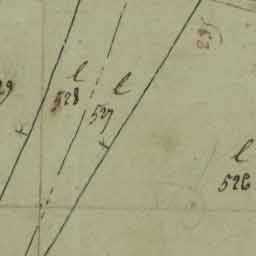 l
528
l
527
l
526
29